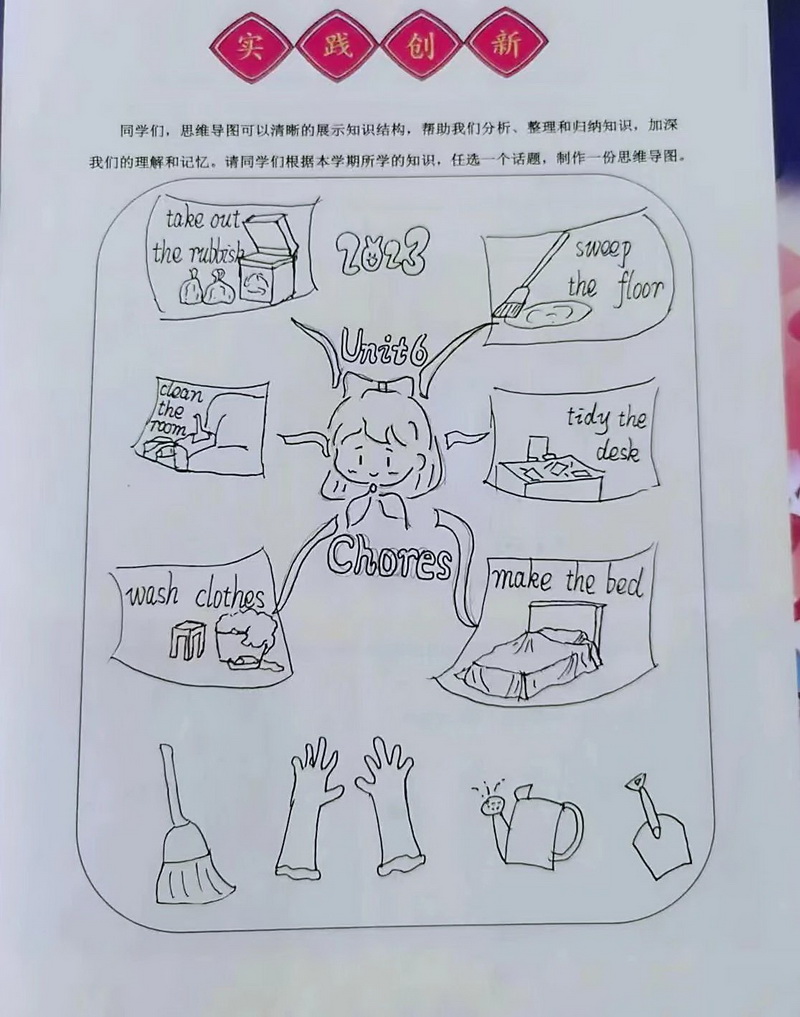 实践创新
同学们，思维导图可以清晰的展示知识结构，帮助我们分析、整理和归纳知识，加深
我们的理解和记忆。请同学们根据本学期所学的知识，任选一个话题，制作一份思维导图。
take out
the rubbish
2023
sweep
the floor
Unit6
clean
the
room
tidy the
desk
Chores
wash clothes
make the bed